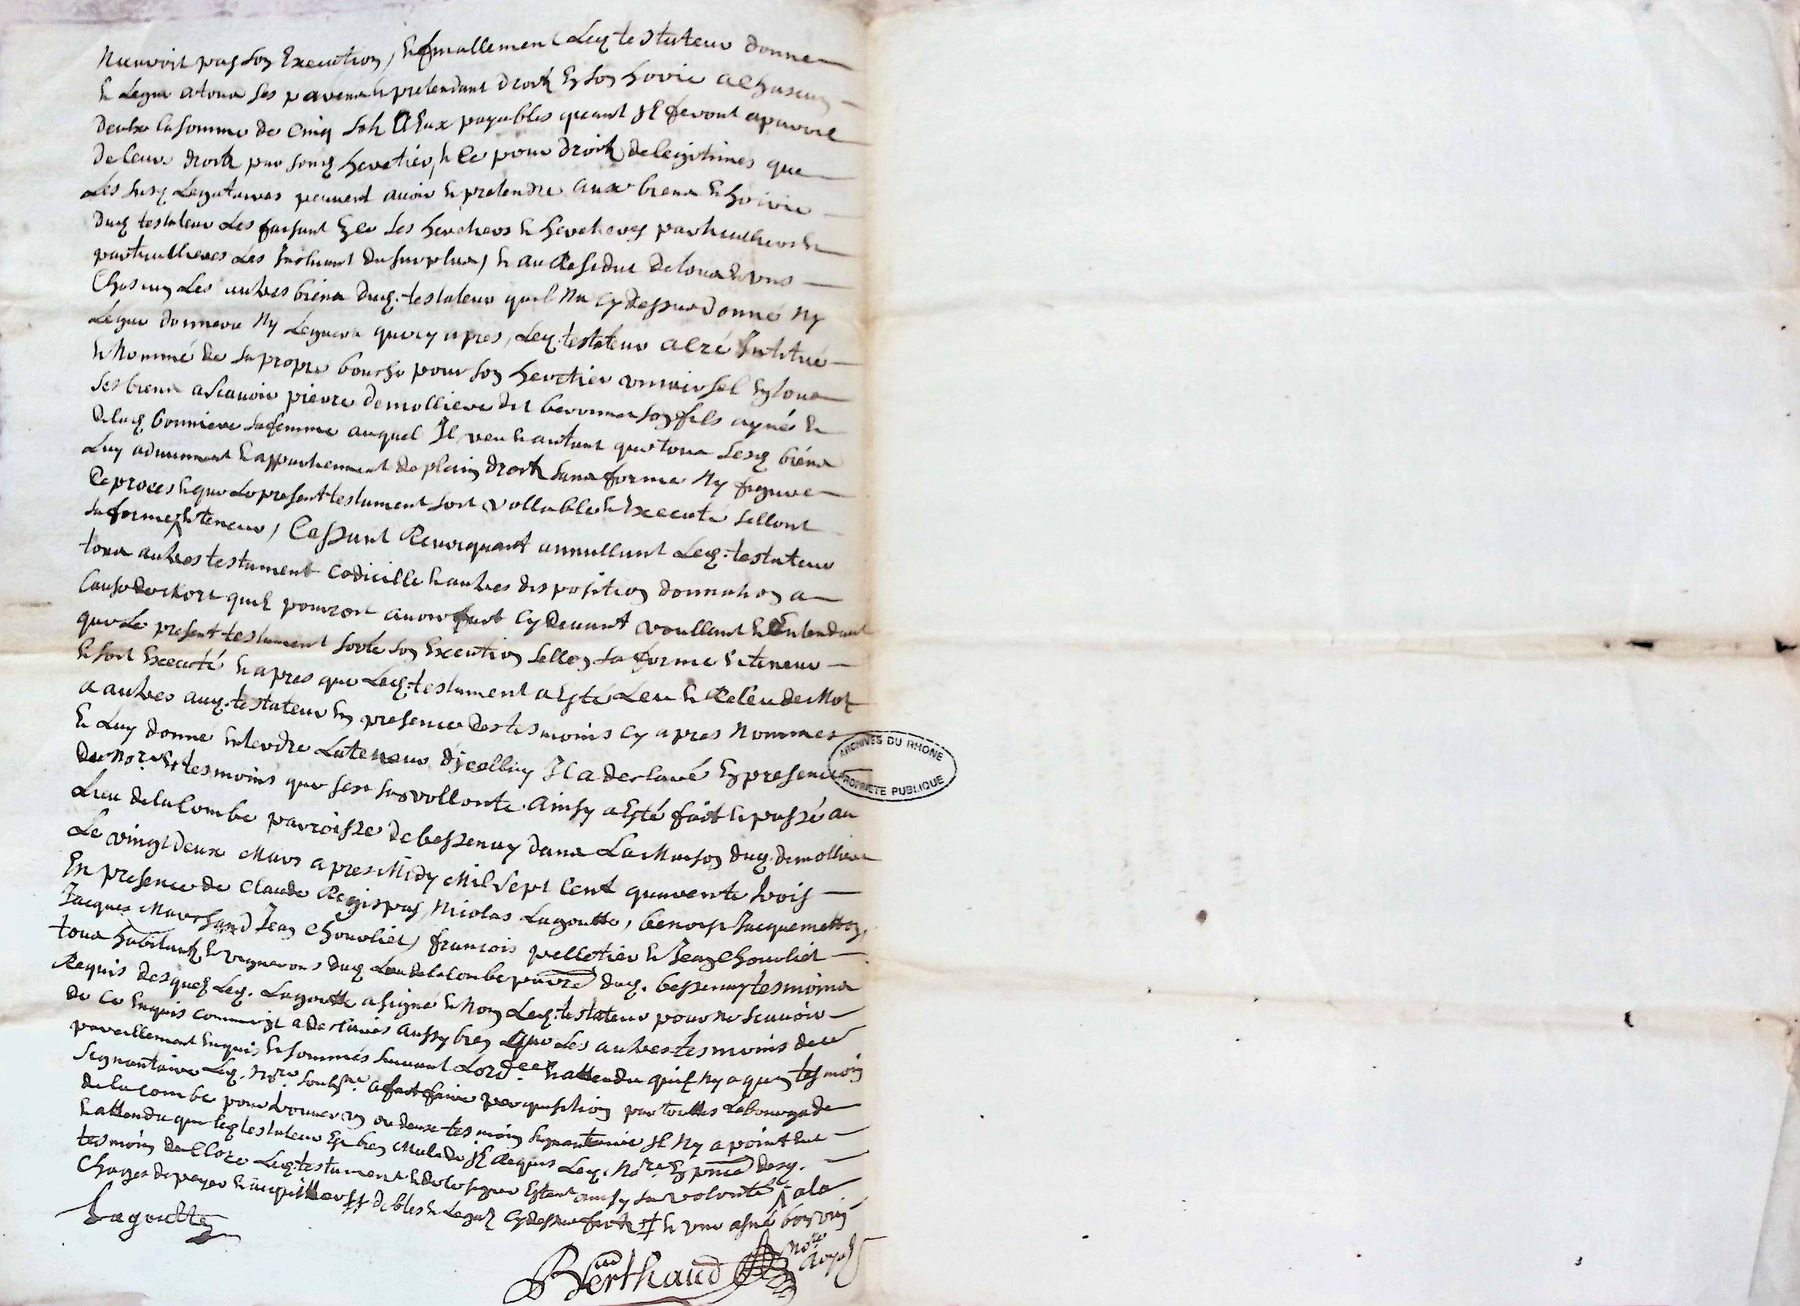 n'auroit pas son execution, et finallement ledt testateur donne
et legue a tous ses parens et pretendant droit en son hoirie a chascun
deulx la somme de cinq solz a eux payables quant Il feront aparoir
de leurs droitz par sondt heretier, et ce pour droitz de legitimes que
Les susdt Legataires peuvent avoir et pretendre aux biens et hoirie
dudt testateur Les faisant ses heretiers et heretieres particulliers et
particullieres Les Incluant du surplus, et au Residut de tous et uns
Chascun Les autres biens dudt testateur quil Na cy dessus donné Ny
Legue donnera Ny Leguera que cy apres, Ledt testateur a cré Institué
et Nommé de sa propre bouche pour son heretier universel en tous
ses biens a scavoir pierre demolliere dit son fils ayné et
de ladt bonniere sa femme auquel Il veu et antant que tous sesdt biens
Luy adviennent et appartiennent de plain droit sans forme Ny figure
de proces et que le present testament soit vallable et execute sellont
sa forme et teneur, Cessant Revocquant annullant Ledt testateur
tous autres testament codicille et autres disposition donnation a
cause de mort quil pourroit avoir fait cy devant voullant et Entendant
que Le present testament sorte son execution sellon sa forme et teneur
et soit executé et apres que Ledt testament a esté Leu et Releu de Mot
a autres audt testateur en presence des tesmoins cy apres Nommes
et Luy donne entendre La teneur d'jcelluy Il a desclaré en presence
des Nore et tesmoins que sest sa vollonte. Ainsy a esté fait et passé au
Lieu de la Combe parroisse de bessenay dans La Maison dudt demolliere
Le vingt deux Mars apres Midy Mil sept Cent quarente trois
En presence de Claude Regispas, Nicolas Lagoutte, benoist Jacquemetton,
Jacques Marchand Jean Chouvliet, francois pelletier et Jean Chouvliet
tous habitantz et vignerons dudt Lieu de la Combe parre dudt. bessenay tesmoins
Requis desquelz Ledt. Lagoutte a signé et Non Ledt testateur pour ne scavoir
de ce enquis comme jl a desclarés aussy bien que Les autres tesmoins de ce
pareillement enquis et sommés suivant Lordce. et attendu quil Ny a quun tesmoin
signantaire Ledt. Nore soubsne. a fait faire perquisition par touttes La bourgade
de la combe pour trouver un ou deux tesmoin signantaire Il Ny a point eut
et attendu que Ledt testateur est bien Malade Il Requis Ledt. Nore En pnce desdt.
tesmoin de Clore Ledt testament et de le signer Estant ainsy sa volonté a la
Charges de payer et acquitter ses debtes et Legaz cy dessus faitz
Lagoutte
Berthaud Nore Royal
ARCHIVES DU RHONE
PROPRIETE PUBLIQUE